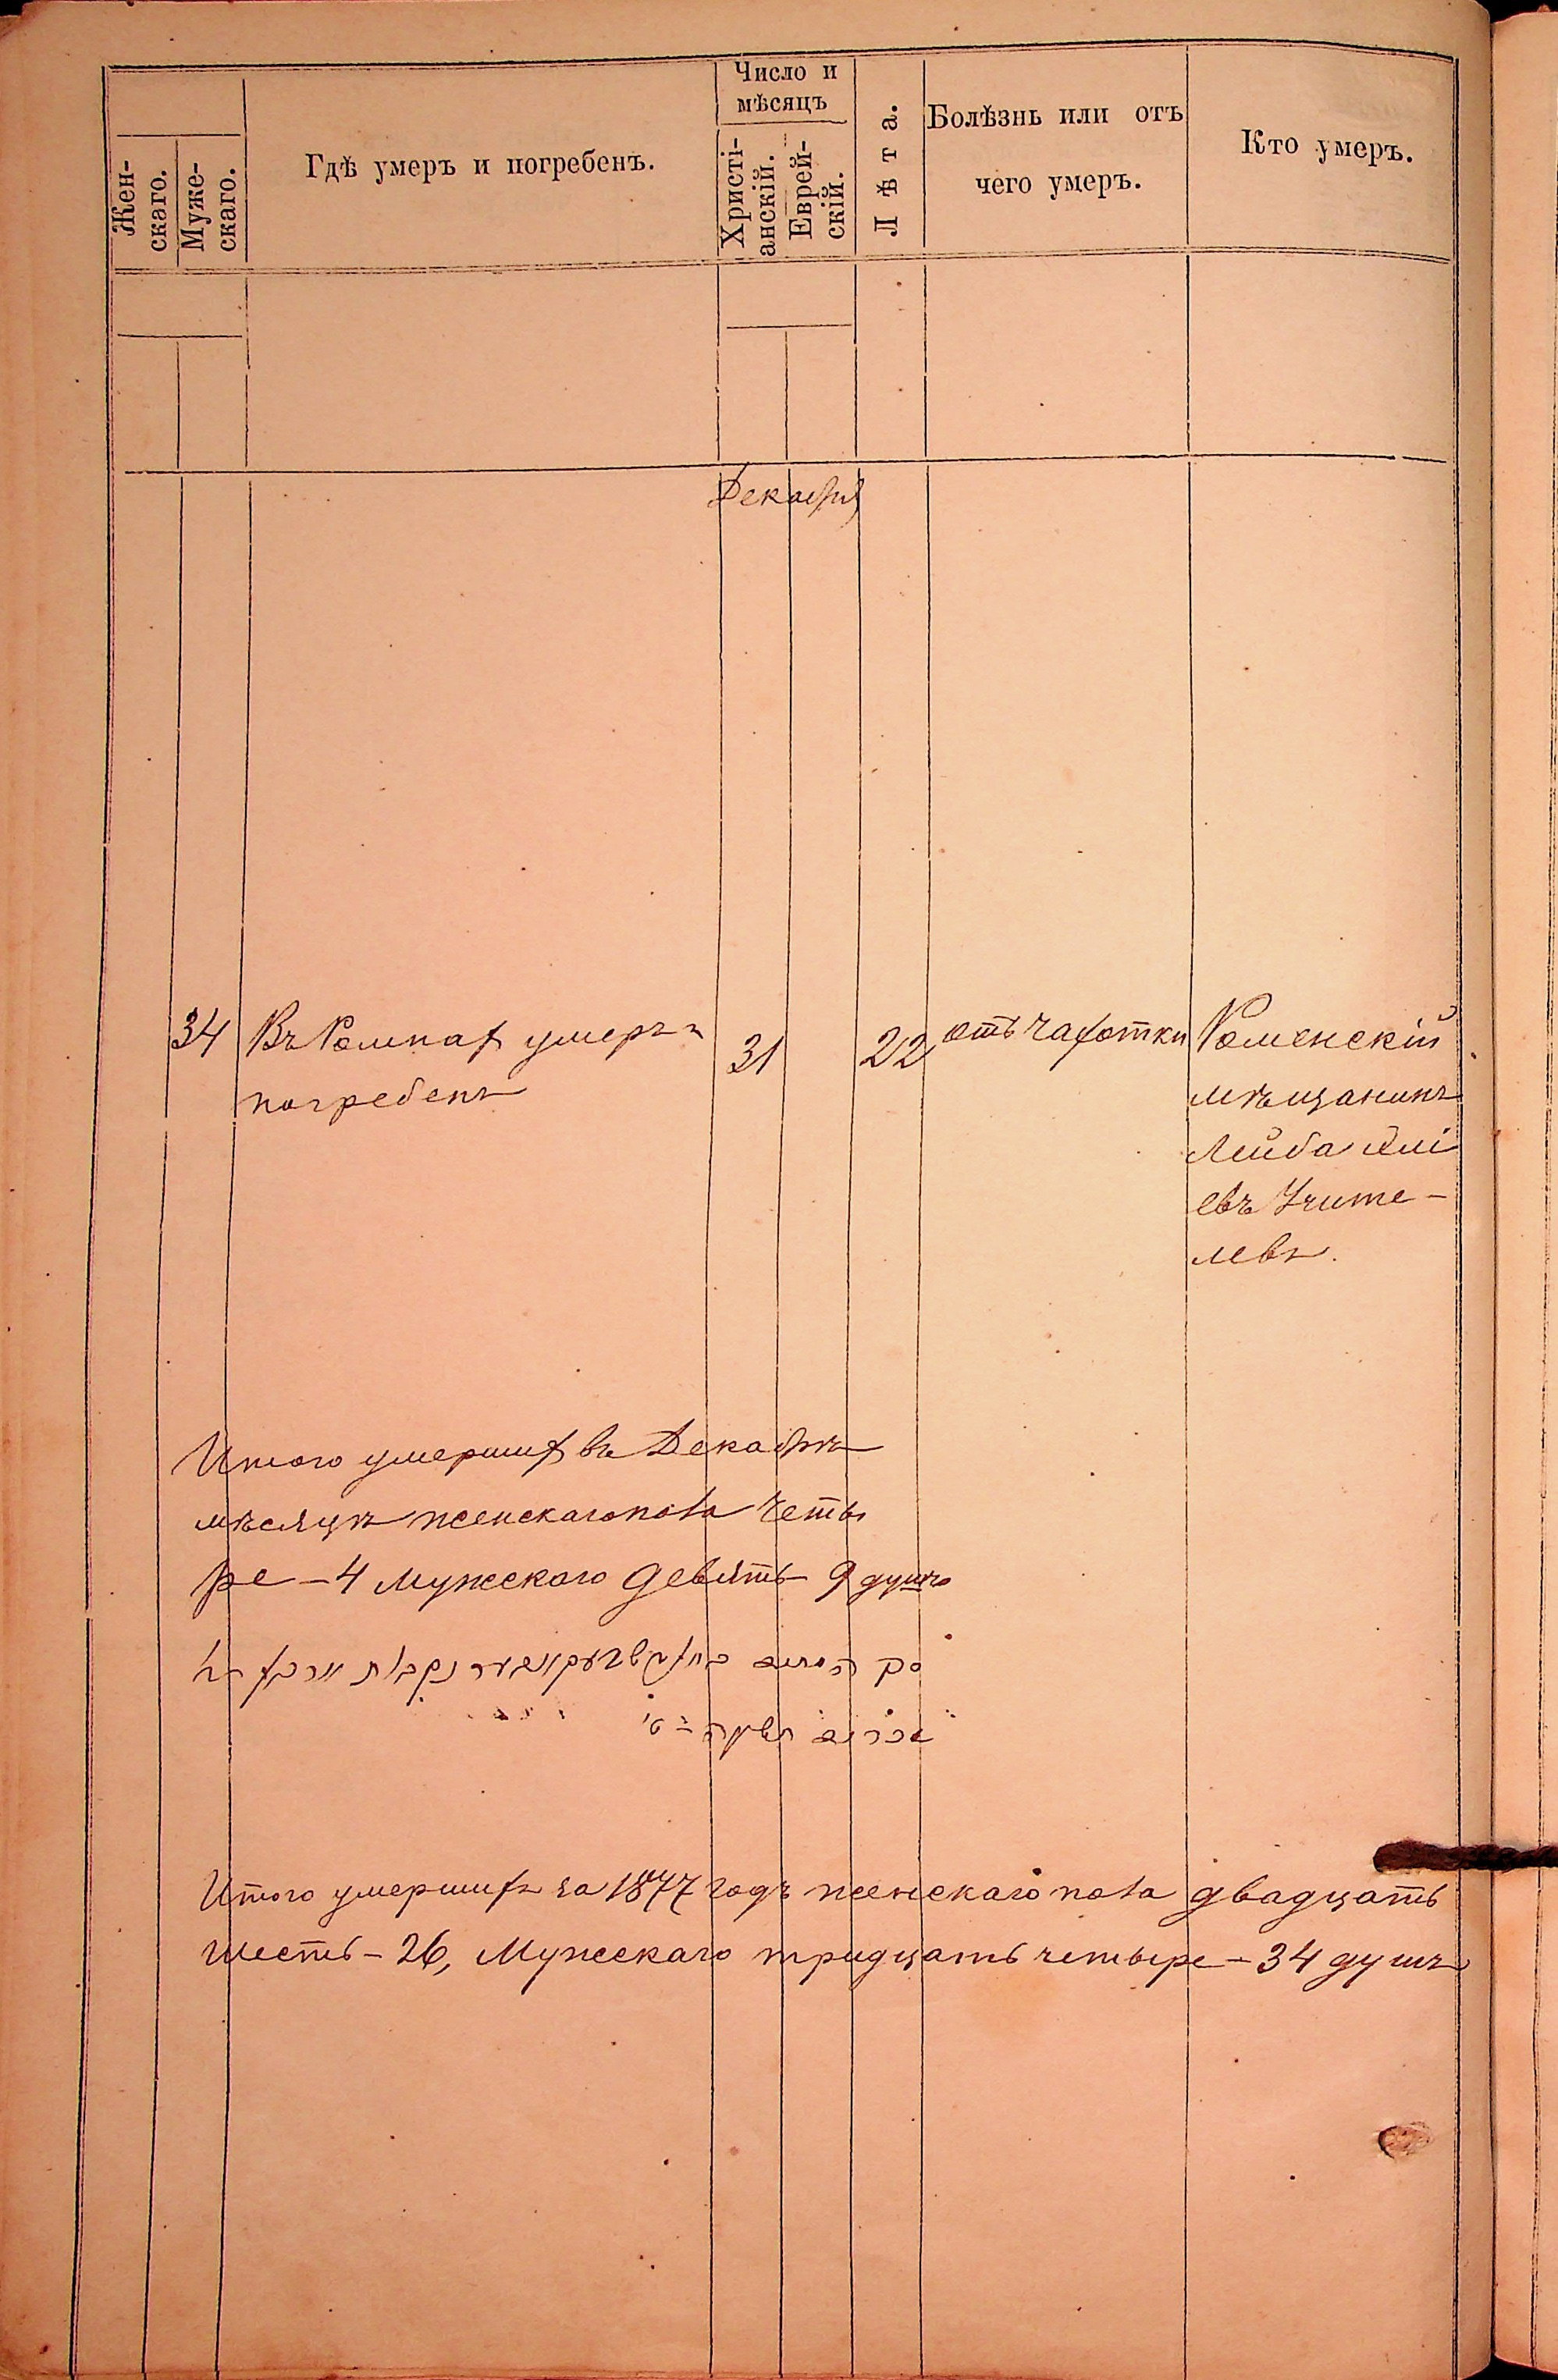 Число и
мѣсяцъ
Жен-
скаго.
Муже-
скаго.
Гдѣ умеръ и погребенъ.
Христі-
анскій.
Еврей-
скій.
Лѣта.
Болѣзнь или отъ
чего умеръ.
Кто умеръ.
Декабря
34 Въ Ромнах умеръ и 31 22 отъ чахотки Роменскій
погребенъ мѣщанинъ
Лейба
евъ Учите-
левъ.
Итого умерших въ Декабрѣ
мѣсяцѣ женскаго пола четы
ре - 4 мужескаго девять 9 душъ
Итого умершихъ за 1877 годъ женскаго пола двадцать
шесть - 26, Мужескаго тридцать четыре - 34 душъ